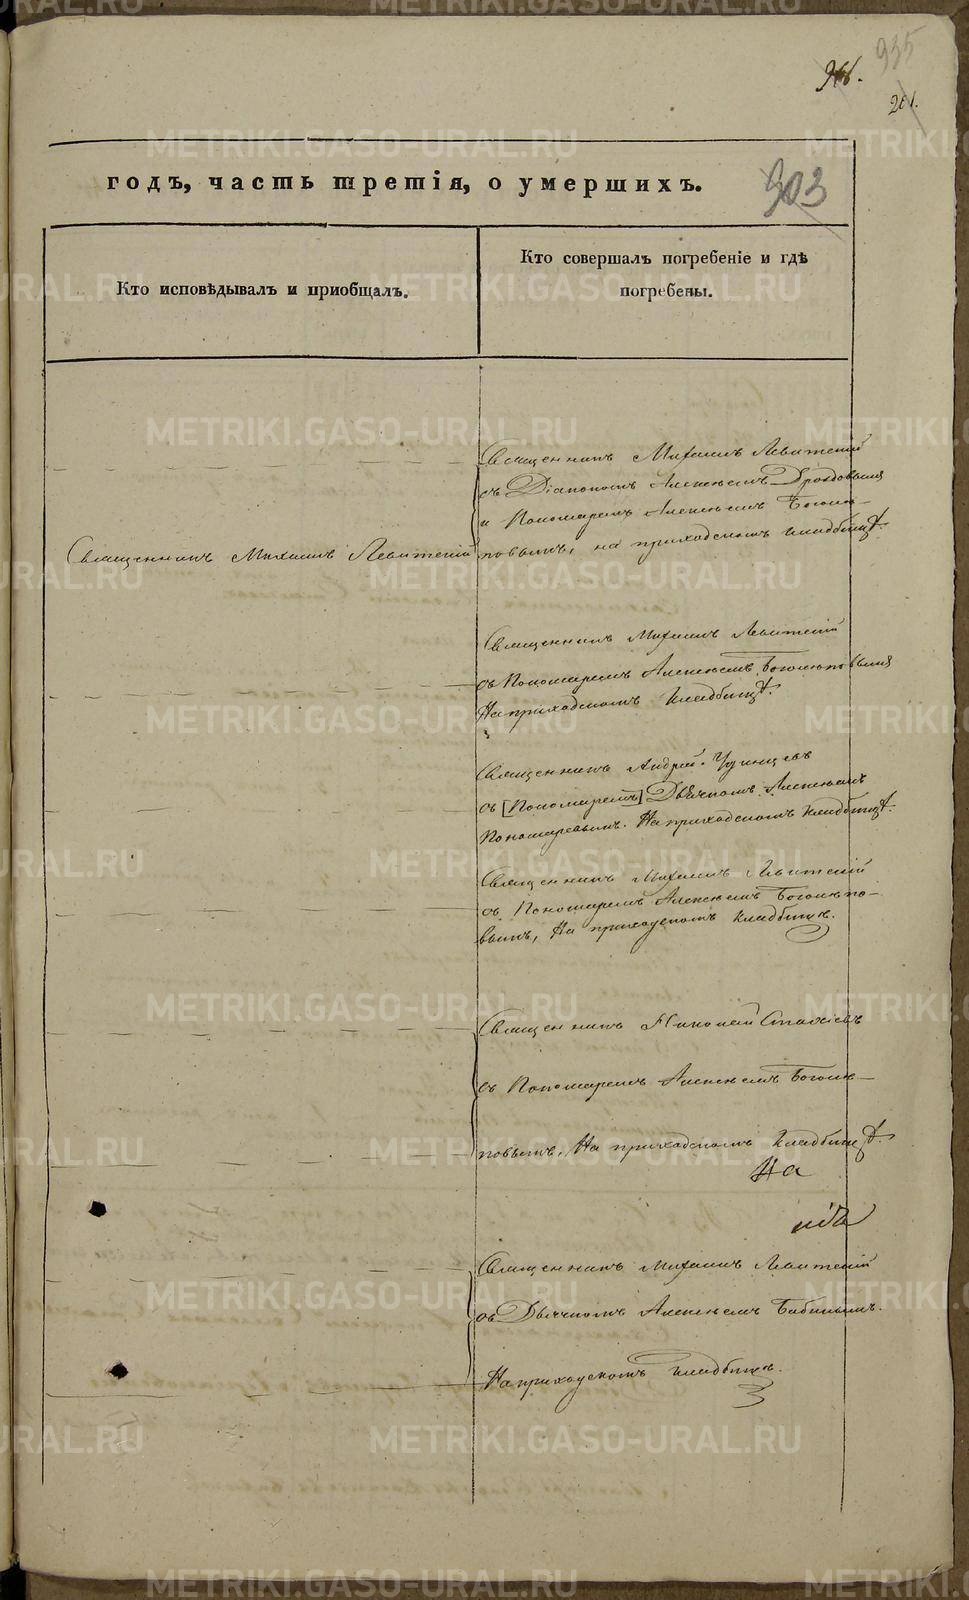 935
201.
годъ, часть третія, о умершихъ.
303
Кто исповѣдывалъ и пріобщалъ.
Кто совершалъ погребеніе и гдѣ
погребены.
Священникъ Михаилъ Левитскій
съ Діакономъ Алексѣемъ Дроздовымъ
и Пономаремъ Алексѣемъ Боголѣ-
Священникъ Михаилъ Левитскій
повымъ, на приходскомъ кладбищѣ.
Священникъ Михаилъ Левитскій
съ Пономаремъ Алексѣемъ Боголѣповымъ
На приходскомъ кладбищѣ.
Священникъ Андрей Удинцевъ
съ [Пономаремъ] Дьячкомъ Алексѣемъ
Пономаревымъ. На приходскомъ кладбищѣ.
Священникъ Михаилъ Левитскій
съ Пономаремъ Алексѣемъ Боголѣпо-
вымъ, На приходскомъ кладбищѣ.
Священникъ Николай Стахіевъ
съ Пономаремъ Алексѣемъ Боголѣ-
повымъ, На приходскомъ кладбищѣ.
На
Священникъ Михаилъ Левитскій
съ Дьячкомъ Алексѣемъ Бабинымъ.
На приходскомъ кладбищѣ.
METRIKI.GASO-URAL.RU